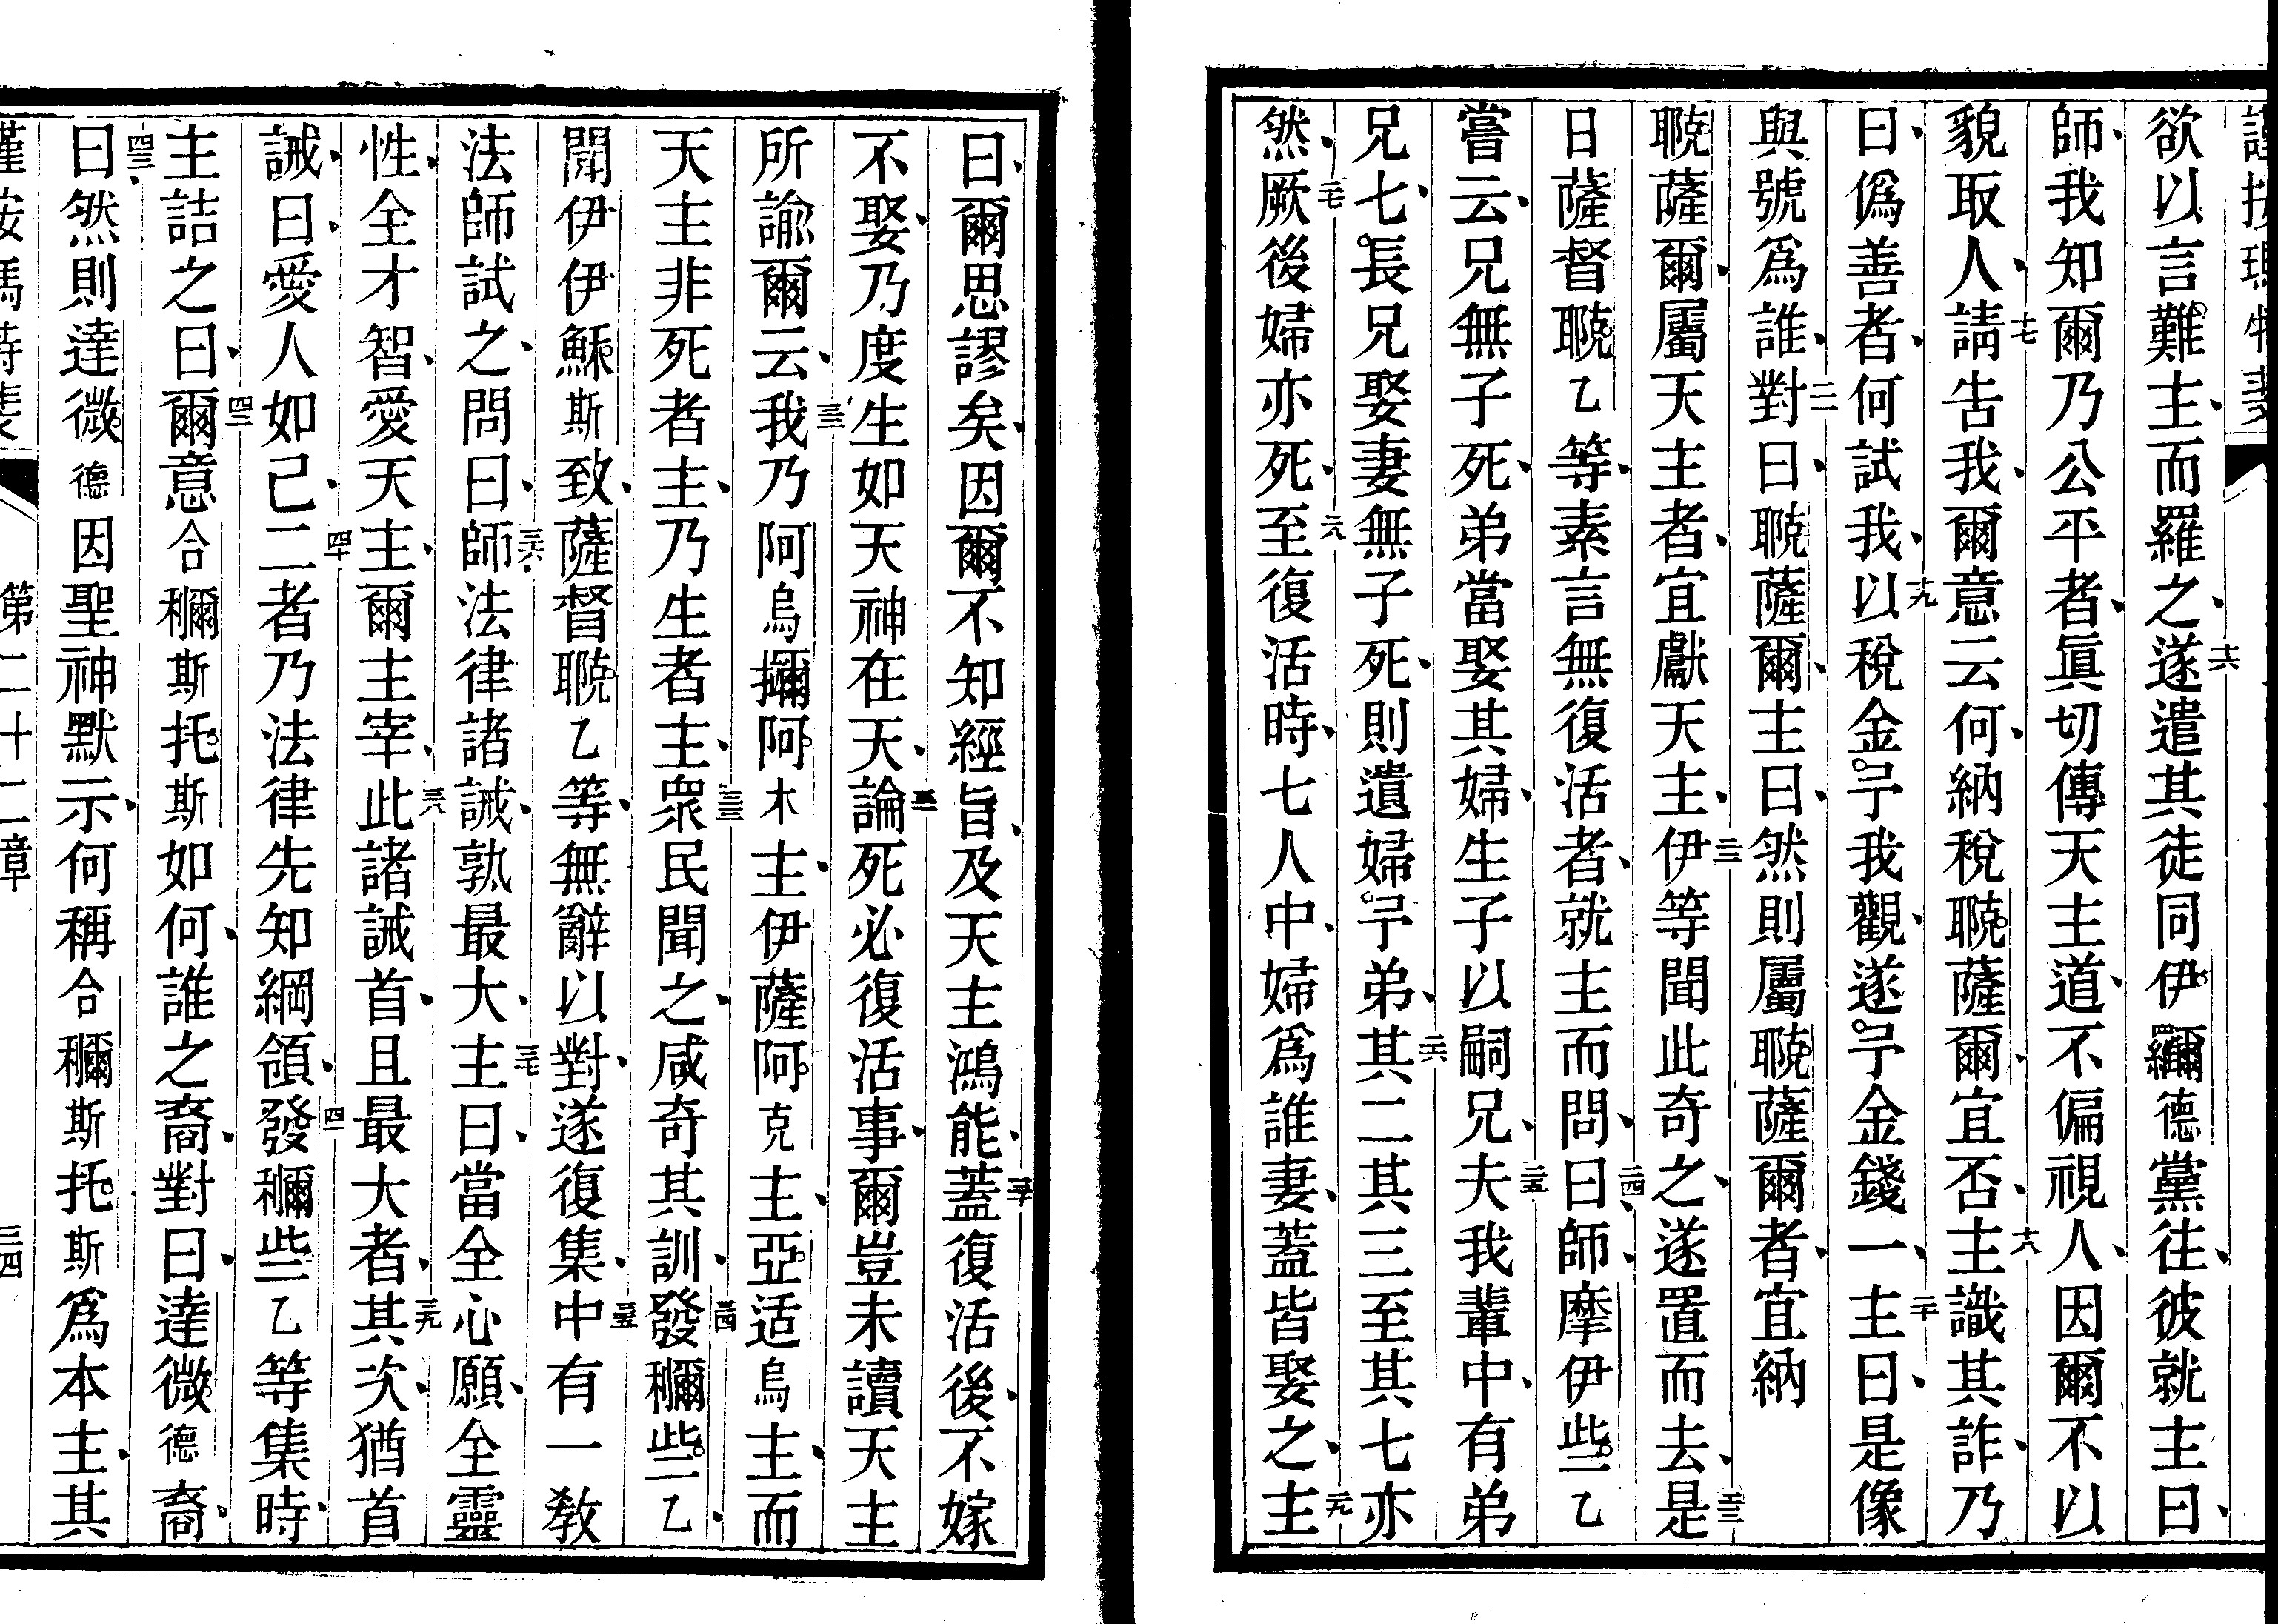 欲以言難主、而羅之、十六遂遣其徒同伊䌤德黨往、彼就主曰、
師、我知爾乃公平者、眞切傳天主道、不偏視人、因爾不以
貌取人、十七請告我、爾意云何、納稅聸薩爾、宜否、十八主識其詐、乃
曰、僞善者、何試我、十九以稅金予我觀、遂予金錢一、二十主曰、是像
與號爲誰、二一對曰、薩爾、主曰、然則屬薩爾者、宜納
薩爾、屬天主者、宜獻天主、二二伊等聞此奇之、遂置而去、二三是
日薩督乙等、素言無復活者、就主而問、二四曰、師、摩伊些乙
嘗云、兄無子死、弟當娶其婦、生子以嗣兄、二五夫我輩中、有弟
兄七、長兄娶妻無子死、則遺婦予弟、二六其二其三至其七亦
然、二七厥後婦亦死、二八至復活時、七人中、婦爲誰妻、蓋皆娶之、二九主
曰、爾思謬矣、因爾不知經旨、及天主鴻能、三十蓋復活後、不嫁
不娶、乃度生如天神在天、三一論死必復活事、爾豈未讀天主
所諭爾云、三二我乃阿烏擟阿木主、伊薩阿克主、亞适烏主、而
天主非死者主、乃生者主、三三衆民聞之、咸奇其訓、三四發穪些乙、
聞伊伊穌斯致薩督乙等、無辭以對、遂復集、三五中有一敎
法師試之、問曰、三六師、法律諸誡、孰最大、三七主曰、當全心願、全靈
性、全才智、愛天主、爾主宰、三八此諸誡首、且最大者、三九其次、猶首
誡、曰、愛人如己、四十二者乃法律先知綱領、四一發穪些乙等集時、
主詰之曰、四二爾意合穪斯托斯如何、誰之裔、對曰、達微德裔、
四三曰、然則達微德因聖神默示、何稱合穪斯托斯爲本主、其
第二十二章
三四